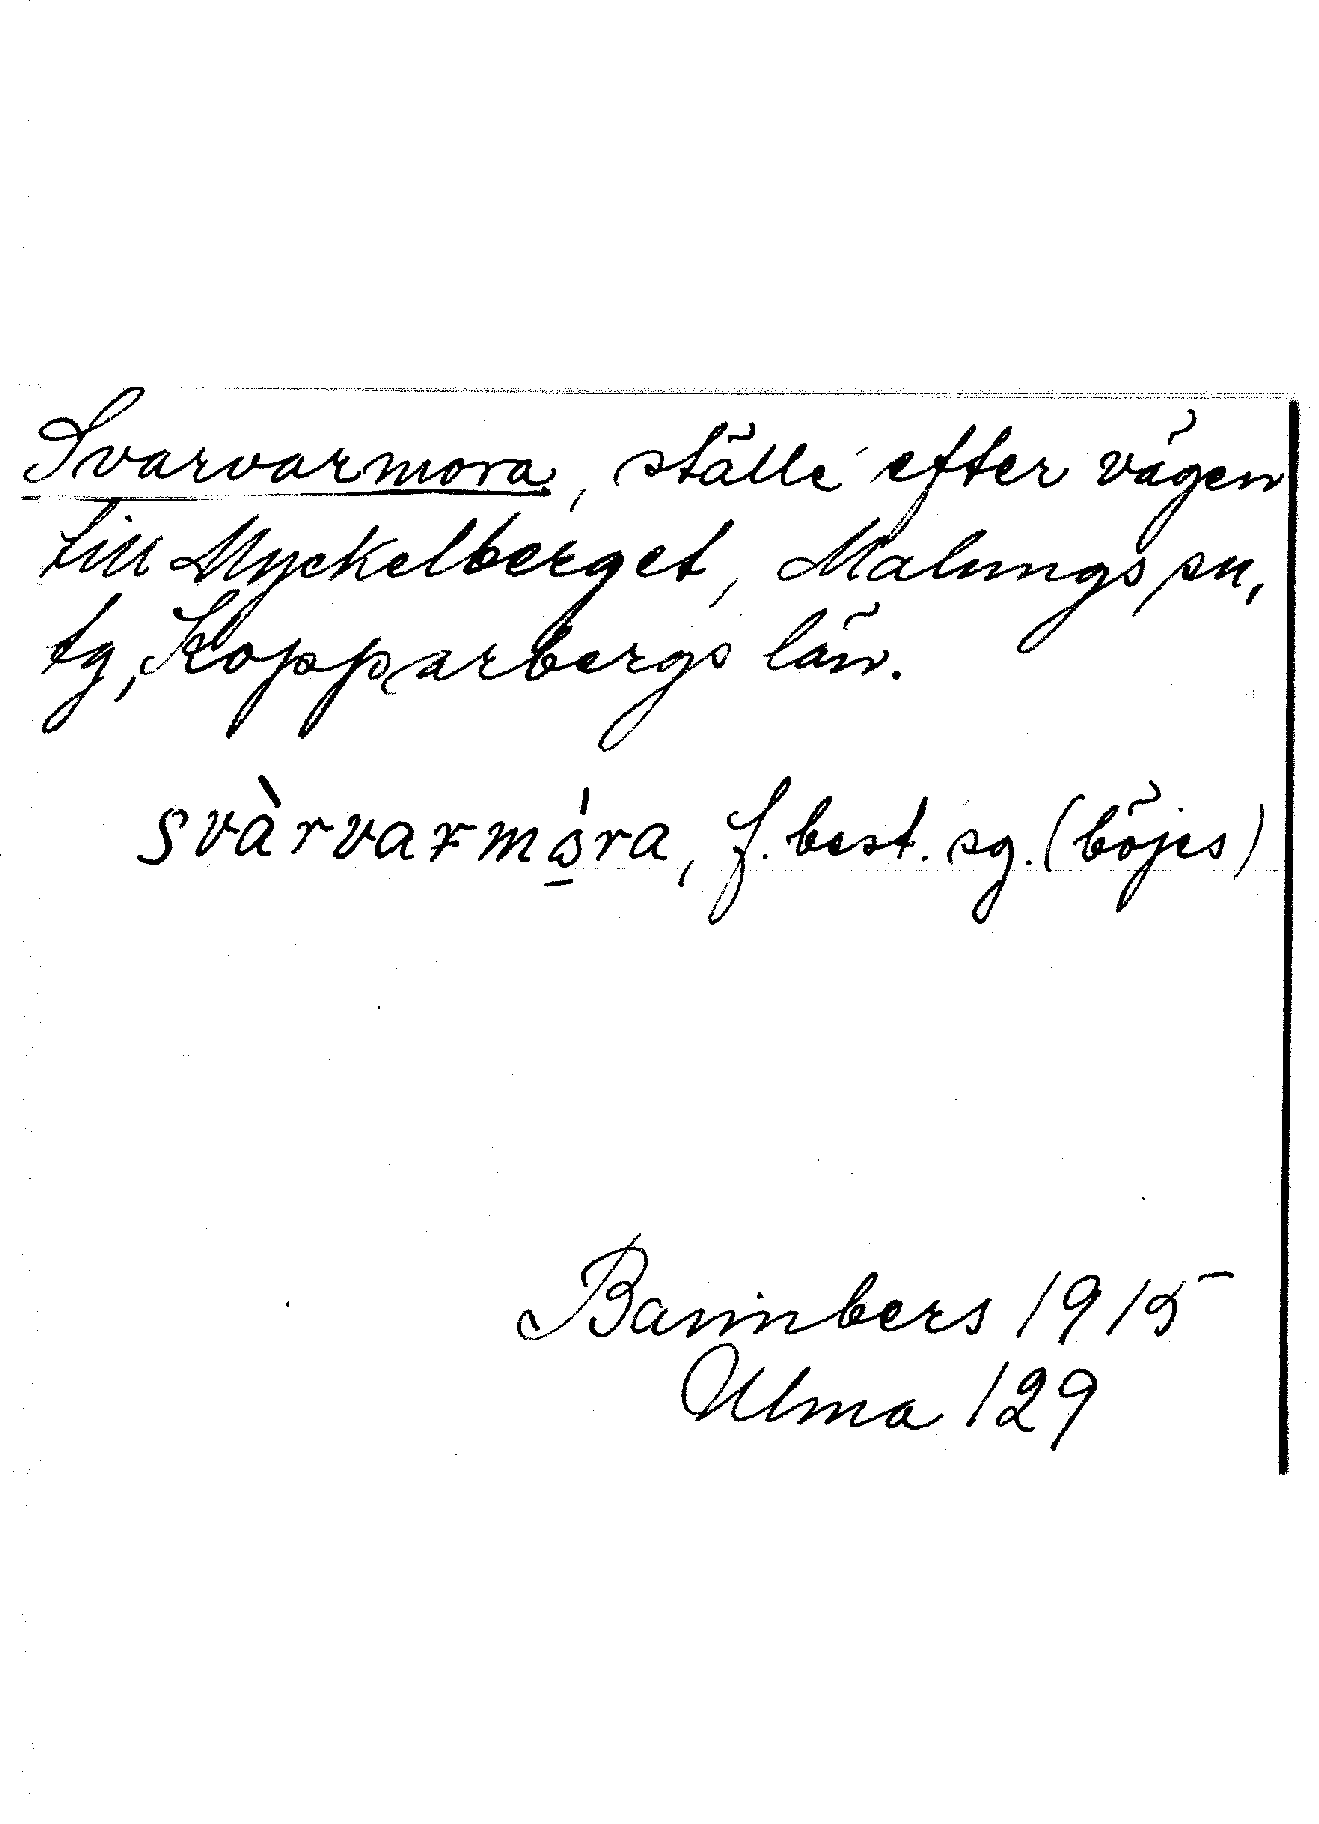 Svarvarmora, ställe efter vägen
till Myckelberget, Malungs sn,
tg, Kopparbergs län.
svàrvarmóra, f. best. sg. (böjes)
Bannbers 1915
Ulma 129